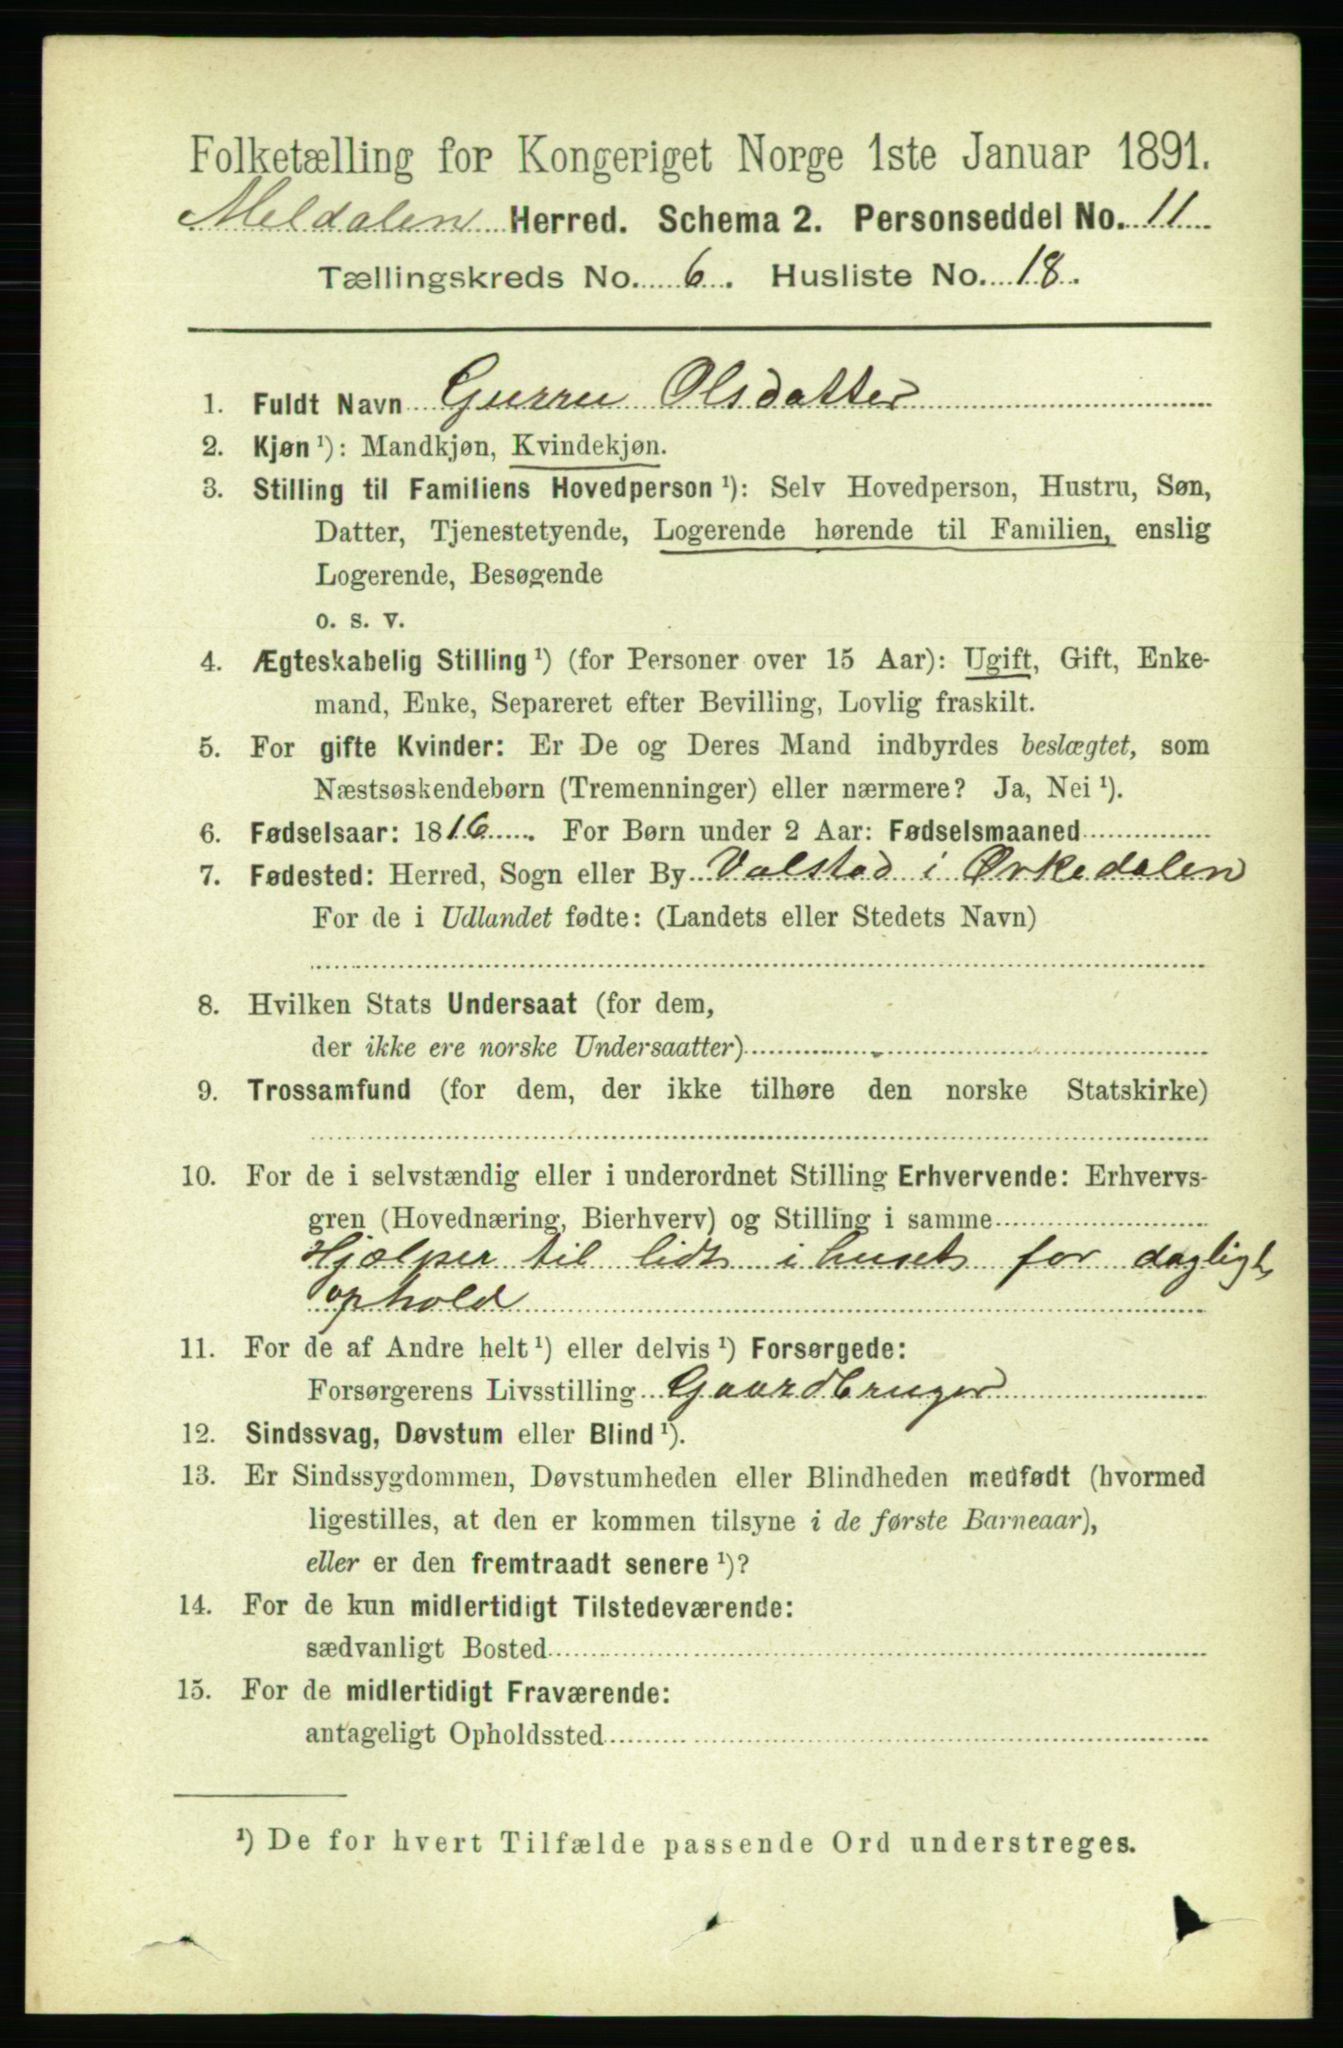 Folketælling for Kongeriget Norge 1ste Januar 1891.
Meldalen Herred. Schema 2. Personseddel No. 11
Tællingskreds No. 6. Husliste No. 18.
1. Fuldt Navn Gurru Olsdatter
2. Kjøn ¹): Mandkjøn, Kvindekjøn.
3. Stilling til Familiens Hovedperson ¹): Selv Hovedperson, Hustru, Søn,
Datter, Tjenestetyende, Logerende hørende til Familien, enslig
Logerende, Besøgende
o. s. v.
4. Ægteskabelig Stilling ¹) (for Personer over 15 Aar): Ugift, Gift, Enke-
mand, Enke, Separeret efter Bevilling, Lovlig fraskilt.
5. For gifte Kvinder: Er De og Deres Mand indbyrdes beslægtet, som
Næstsøskendebørn (Tremenninger) eller nærmere? Ja, Nei ¹).
6. Fødselsaar: 1816. For Børn under 2 Aar: Fødselsmaaned
7. Fødested: Herred, Sogn eller By Valstad i Ørkedalen
For de i Udlandet fødte: (Landets eller Stedets Navn)
8. Hvilken Stats Undersaat (for dem,
der ikke ere norske Undersaatter)
9. Trossamfund (for dem, der ikke tilhøre den norske Statskirke)
10. For de i selvstændig eller i underordnet Stilling Erhvervende: Erhvervs-
gren (Hovednæring, Bierhverv) og Stilling i samme
Hjælper til lidt i huset for dagligt
ophold
11. For de af Andre helt ¹) eller delvis ¹) Forsørgede:
Forsørgerens Livsstilling Gaardbruger
12. Sindssvag, Døvstum eller Blind ¹).
13. Er Sindssygdommen, Døvstumheden eller Blindheden medfødt (hvormed
ligestilles, at den er kommen tilsyne i de første Barneaar),
eller er den fremtraadt senere ¹)?
14. For de kun midlertidigt Tilstedeværende:
sædvanligt Bosted
15. For de midlertidigt Fraværende:
antageligt Opholdssted
¹) De for hvert Tilfælde passende Ord understreges.